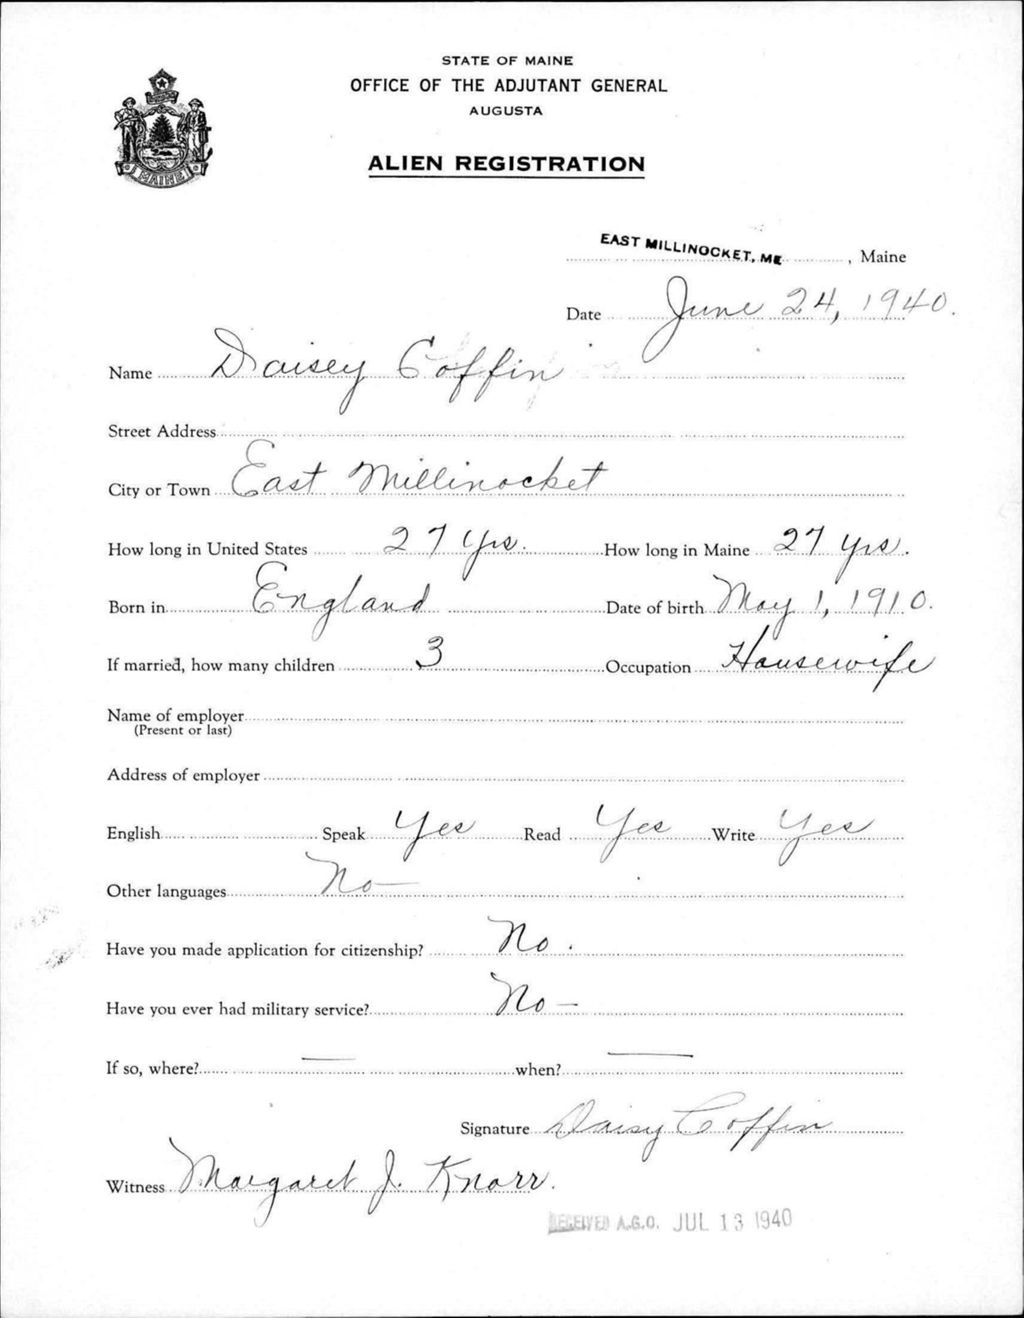 STATE OF MAINE
OFFICE OF THE ADJUTANT GENERAL
AUGUSTA
ALIEN REGISTRATION
MAINE
EAST MILLINOCKET, ME , Maine
Date June 24, 1940.
Name Daisey Coffin
Street Address
City or Town East Millinocket
How long in United States 27 yrs. How long in Maine 27 yrs.
Born in England Date of birth May 1, 1910.
If married, how many children 3 Occupation Housewife
Name of employer
(Present or last)
Address of employer
English Speak Yes Read Yes Write Yes
Other languages No —
Have you made application for citizenship? No.
Have you ever had military service? No —
If so, where? — when? —
Signature Daisy Coffin
Witness Margaret J. Knarr.
RECEIVED A.G.O. JUL 13 1940